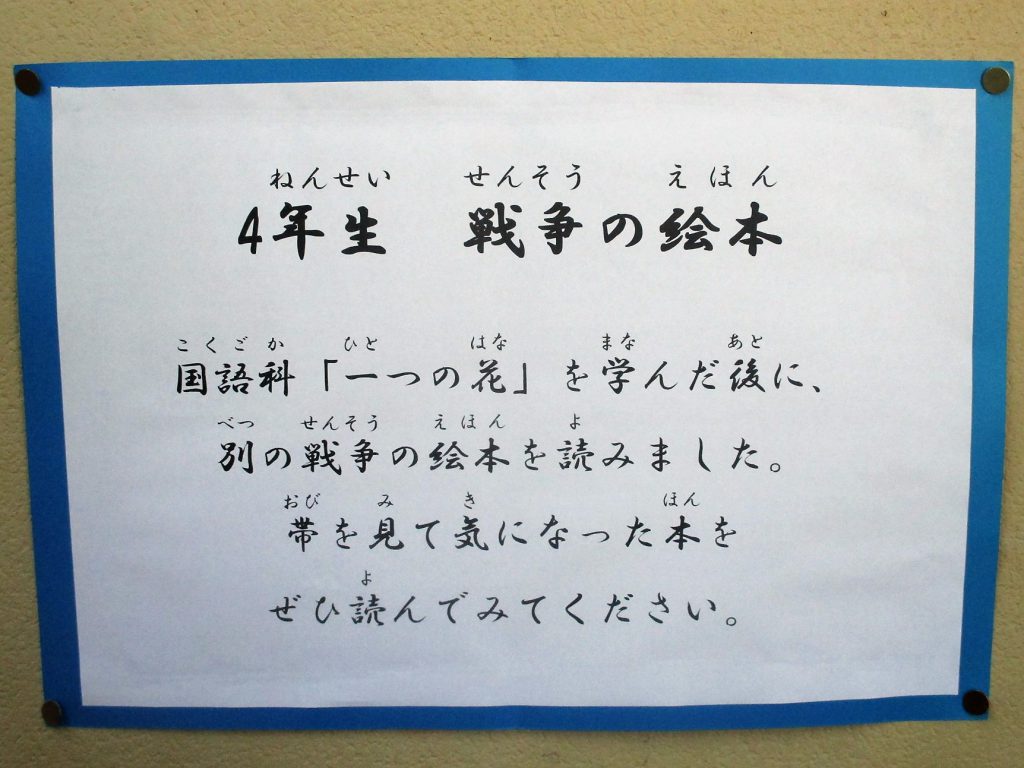 ねんせい せんそう えほん
4年生 戦争の絵本
こくごか ひと はな まな あと
国語科「一つの花」を学んだ後に、
べつ せんそう えほん よ
別の戦争の絵本を読みました。
おび み き ほん
帯を見て気になった本を
よ
ぜひ読んでみてください。